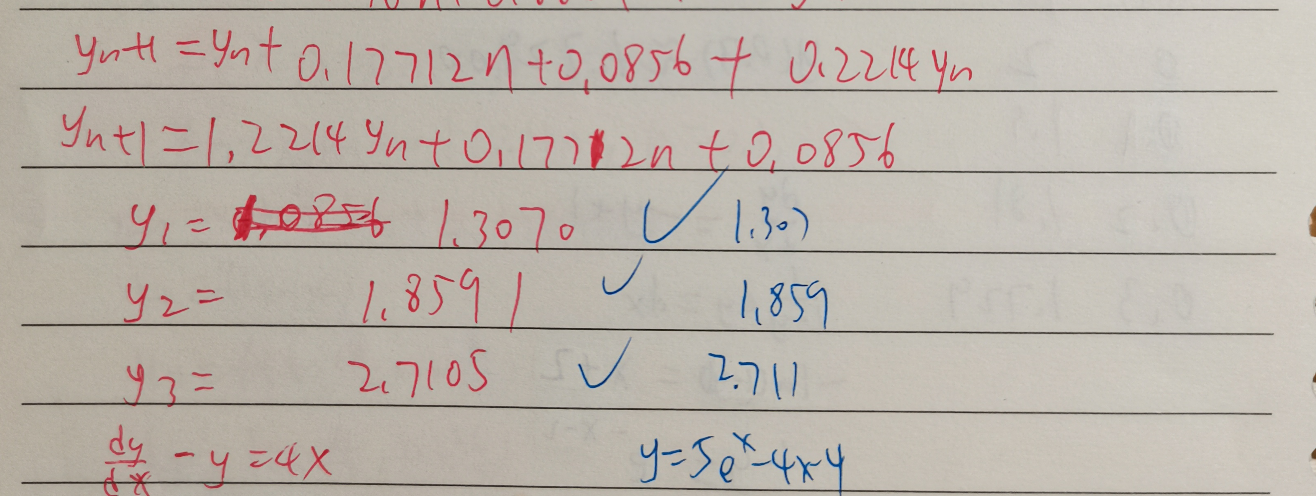 yn+1 = yn + 0.17712n + 0.0856 + 0.2214yn
yn+1 = 1.2214yn + 0.17712n + 0.0856
y1 = 1.3070 ✓ 1.307
y2 = 1.8591 ✓ 1.859
y3 = 2.7105 ✓ 2.711
dy/dx - y = 4x y = 5e^x - 4x - 4